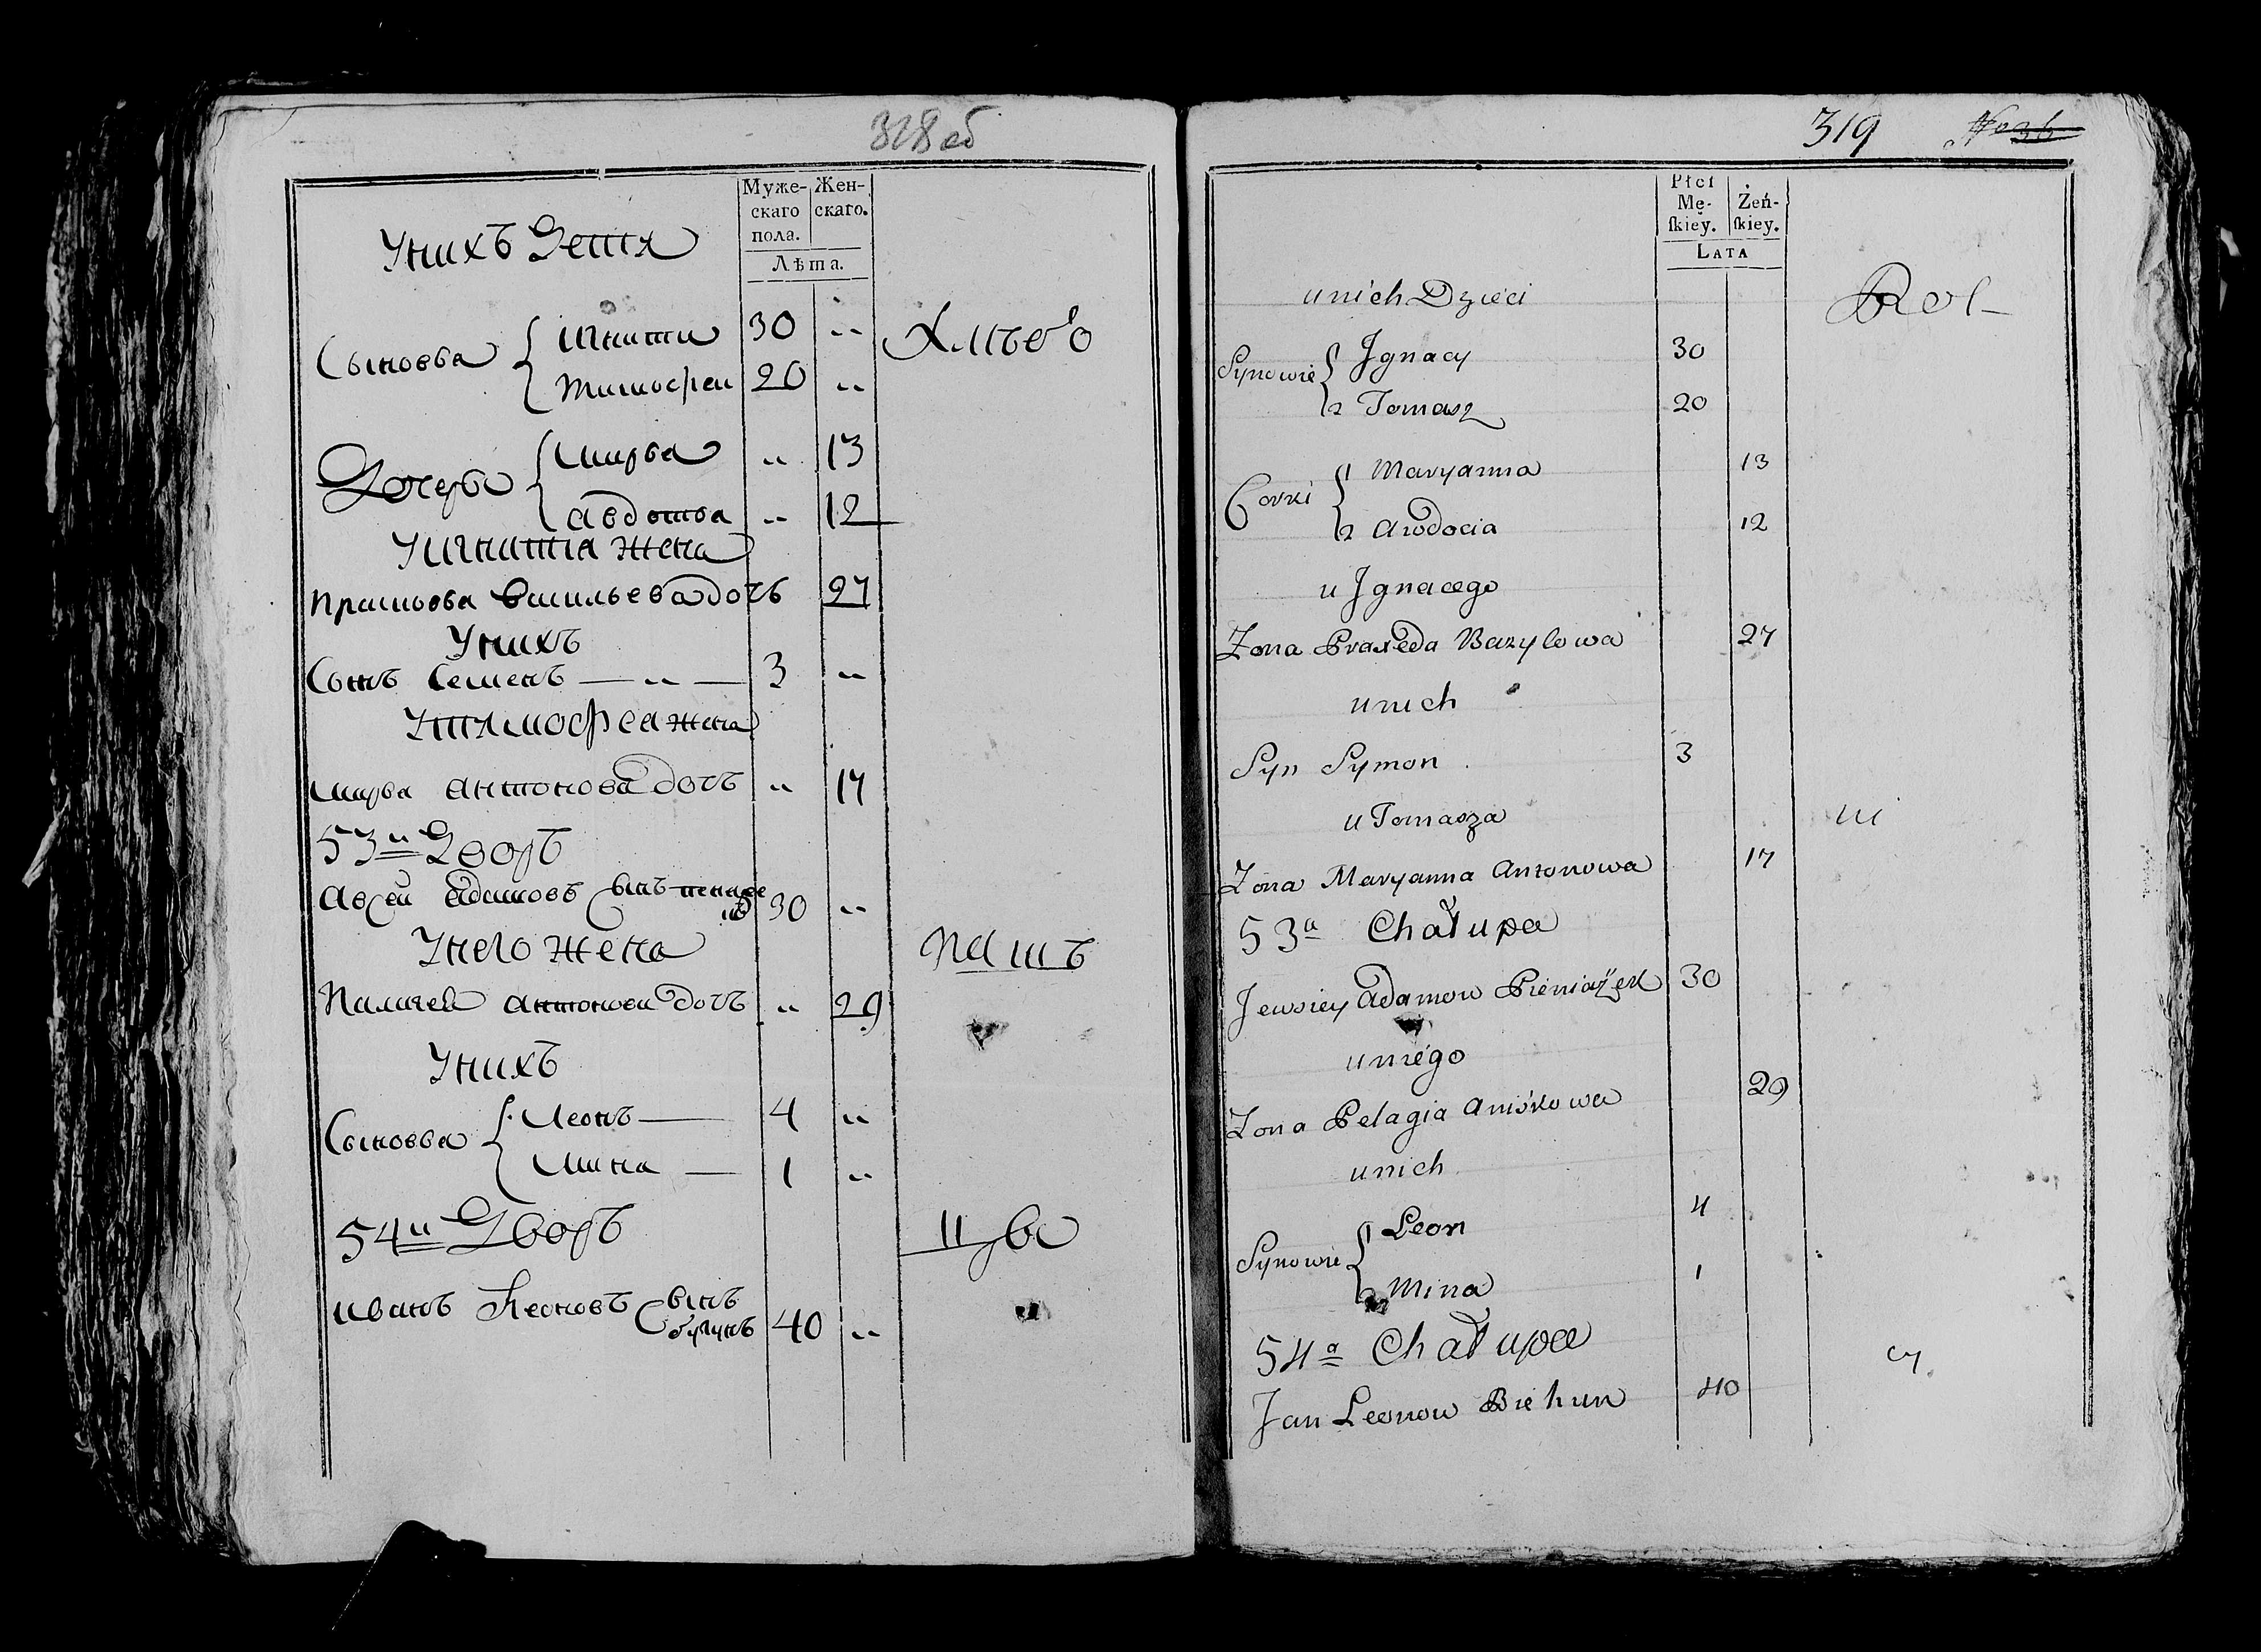 318 об
Муже-
скаго
пола.
Жен-
скаго.
Лѣта.
Унихъ Дети
Сыновья
Игнати 30 "
Тимофеи 20 "
Хлѣбо
Дочерьи
Марья " 13
Авдотья " 12
У Игнатия жена
Прасковья Васильева дочь 27
Унихъ
Сынъ Семенъ — " — 3 "
У Тимофея жена
Марья Антонова дочь " 17
53й Дворъ
Авсей Адамовъ Сынъ 30 "
Унего жена
Пашъ
Палагея Антонова дочь " 29
Унихъ
Сыновья
Леонъ — 4 "
Мина — 1 "
54й Дворъ
Иванъ Леоновъ Сынъ
бегунъ 40 "
319 No 36
Płci
Mę-
skiey.
Żeń-
skiey.
LATA
unich Dzieci
Rol-
Synowie
1 Jgnacy 30
2 Tomasz 20
Corki
1 Maryanna 13
2 Awdocia 12
u Jgnacego
Zona Praxeda Bazylowa 27
unich
Syn Symon 3
u Tomasza
ni
Zona Maryanna Antonowa 17
53a Chałupa
Jewsiey Adamow Pieniążek 30
uniego
Zona Pelagia Aniśkowa 29
unich
Synowie
1 Leon 4
2 Mina 1
54a Chałupa
cy.
Jan Leonow Biehun 40